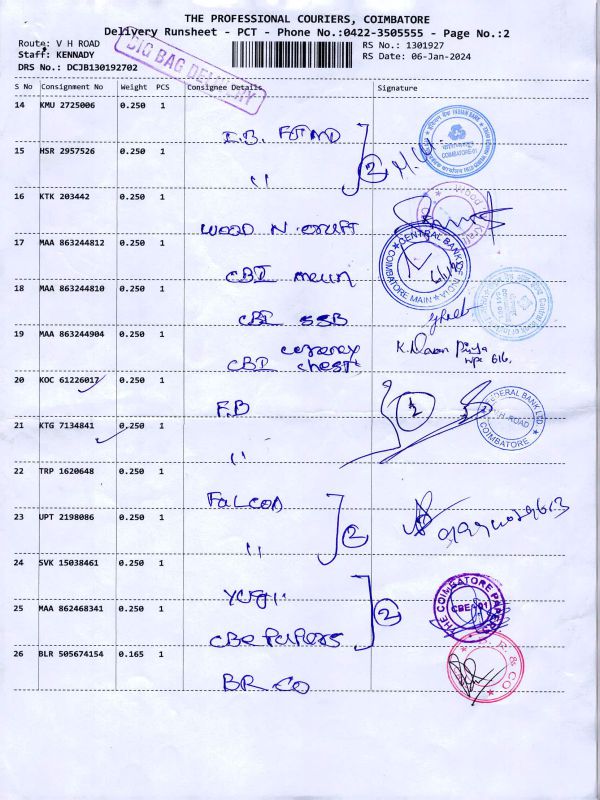 THE PROFESSIONAL COURIERS, COIMBATORE
Delivery Runsheet - PCT - Phone No.:0422-3505555 - Page No.:2
Route: V H ROAD
RS No.: 1301927
Staff: KENNADY
RS Date: 06-Jan-2024
DRS No.: DCJB130192702
BIG BAG DELIVERY
S No Consignment No Weight PCS Consignee Details Signature
14 KMU 2725006 0.250 1
I.B.
INDIAN BANK
COIMBATORE-01
15 HSR 2957526 0.250 1
"
2
16 KTK 203442 0.250 1
WOOD N
17 MAA 863244812 0.250 1
CBI main
CENTRAL BANK OF INDIA
COIMBATORE MAIN
18 MAA 863244810 0.250 1
CBI SSB
19 MAA 863244904 0.250 1
currency
CBI chest
20 KOC 61226017 0.250 1
F.B
2
FEDERAL BANK LTD.
H ROAD
COIMBATORE
21 KTG 7134841 0.250 1
"
22 TRP 1620648 0.250 1
FALCON
23 UPT 2198086 0.250 1
"
2
24 SVK 15038461 0.250 1
2
THE COIMBATORE PAPERS
CBE-01
25 MAA 862468341 0.250 1
CBE Papers
26 BLR 505674154 0.165 1
BR.CO
R. & CO